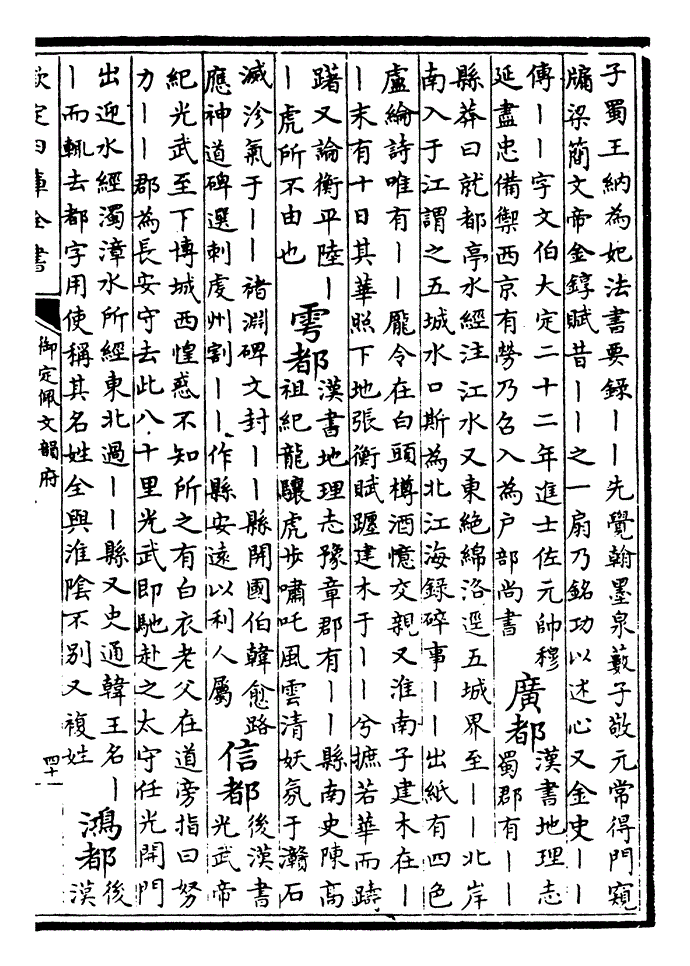 子蜀王納為妃法書要録｜｜先覺翰墨泉藪子敬元常得門窺
牖梁簡文帝金錞賦昔｜｜之一扇乃銘功以述心又金史｜｜
傳｜｜字文伯大定二十二年進士佐元帥穆
延盡忠備禦西京有勞乃召入為戶部尚書
廣都
漢書地理志
蜀郡有｜｜
縣莽曰就都亭水經注江水又東絶綿洛逕五城界至｜｜北岸
南入于江謂之五城水口斯為北江海録碎事｜｜出紙有四色
盧綸詩唯有｜｜龎令在白頭樽酒憶交親又淮南子建木在｜
｜末有十日其華照下地張衡賦躔建木于｜｜兮摭若華而躊
躇又論衡平陸｜
｜虎所不由也
雩都
漢書地理志豫章郡有｜｜縣南史陳高
祖紀龍驤虎步嘯吒風雲清妖氛于灨石
滅沴氣于｜｜褚淵碑文封｜｜縣開國伯韓愈路
應神道碑選刺虔州割｜｜作縣安遠以利人屬
信都
後漢書
光武帝
紀光武至下博城西惶惑不知所之有白衣老父在道旁指曰努
力｜｜郡為長安守去此八十里光武即馳赴之太守任光開門
出迎水經濁漳水所經東北過｜｜縣又史通韓王名｜
｜而輒去都字用使稱其名姓全與淮陰不別又複姓
鴻都
後
漢
欽定四庫全書
御定佩文韻府
四十一